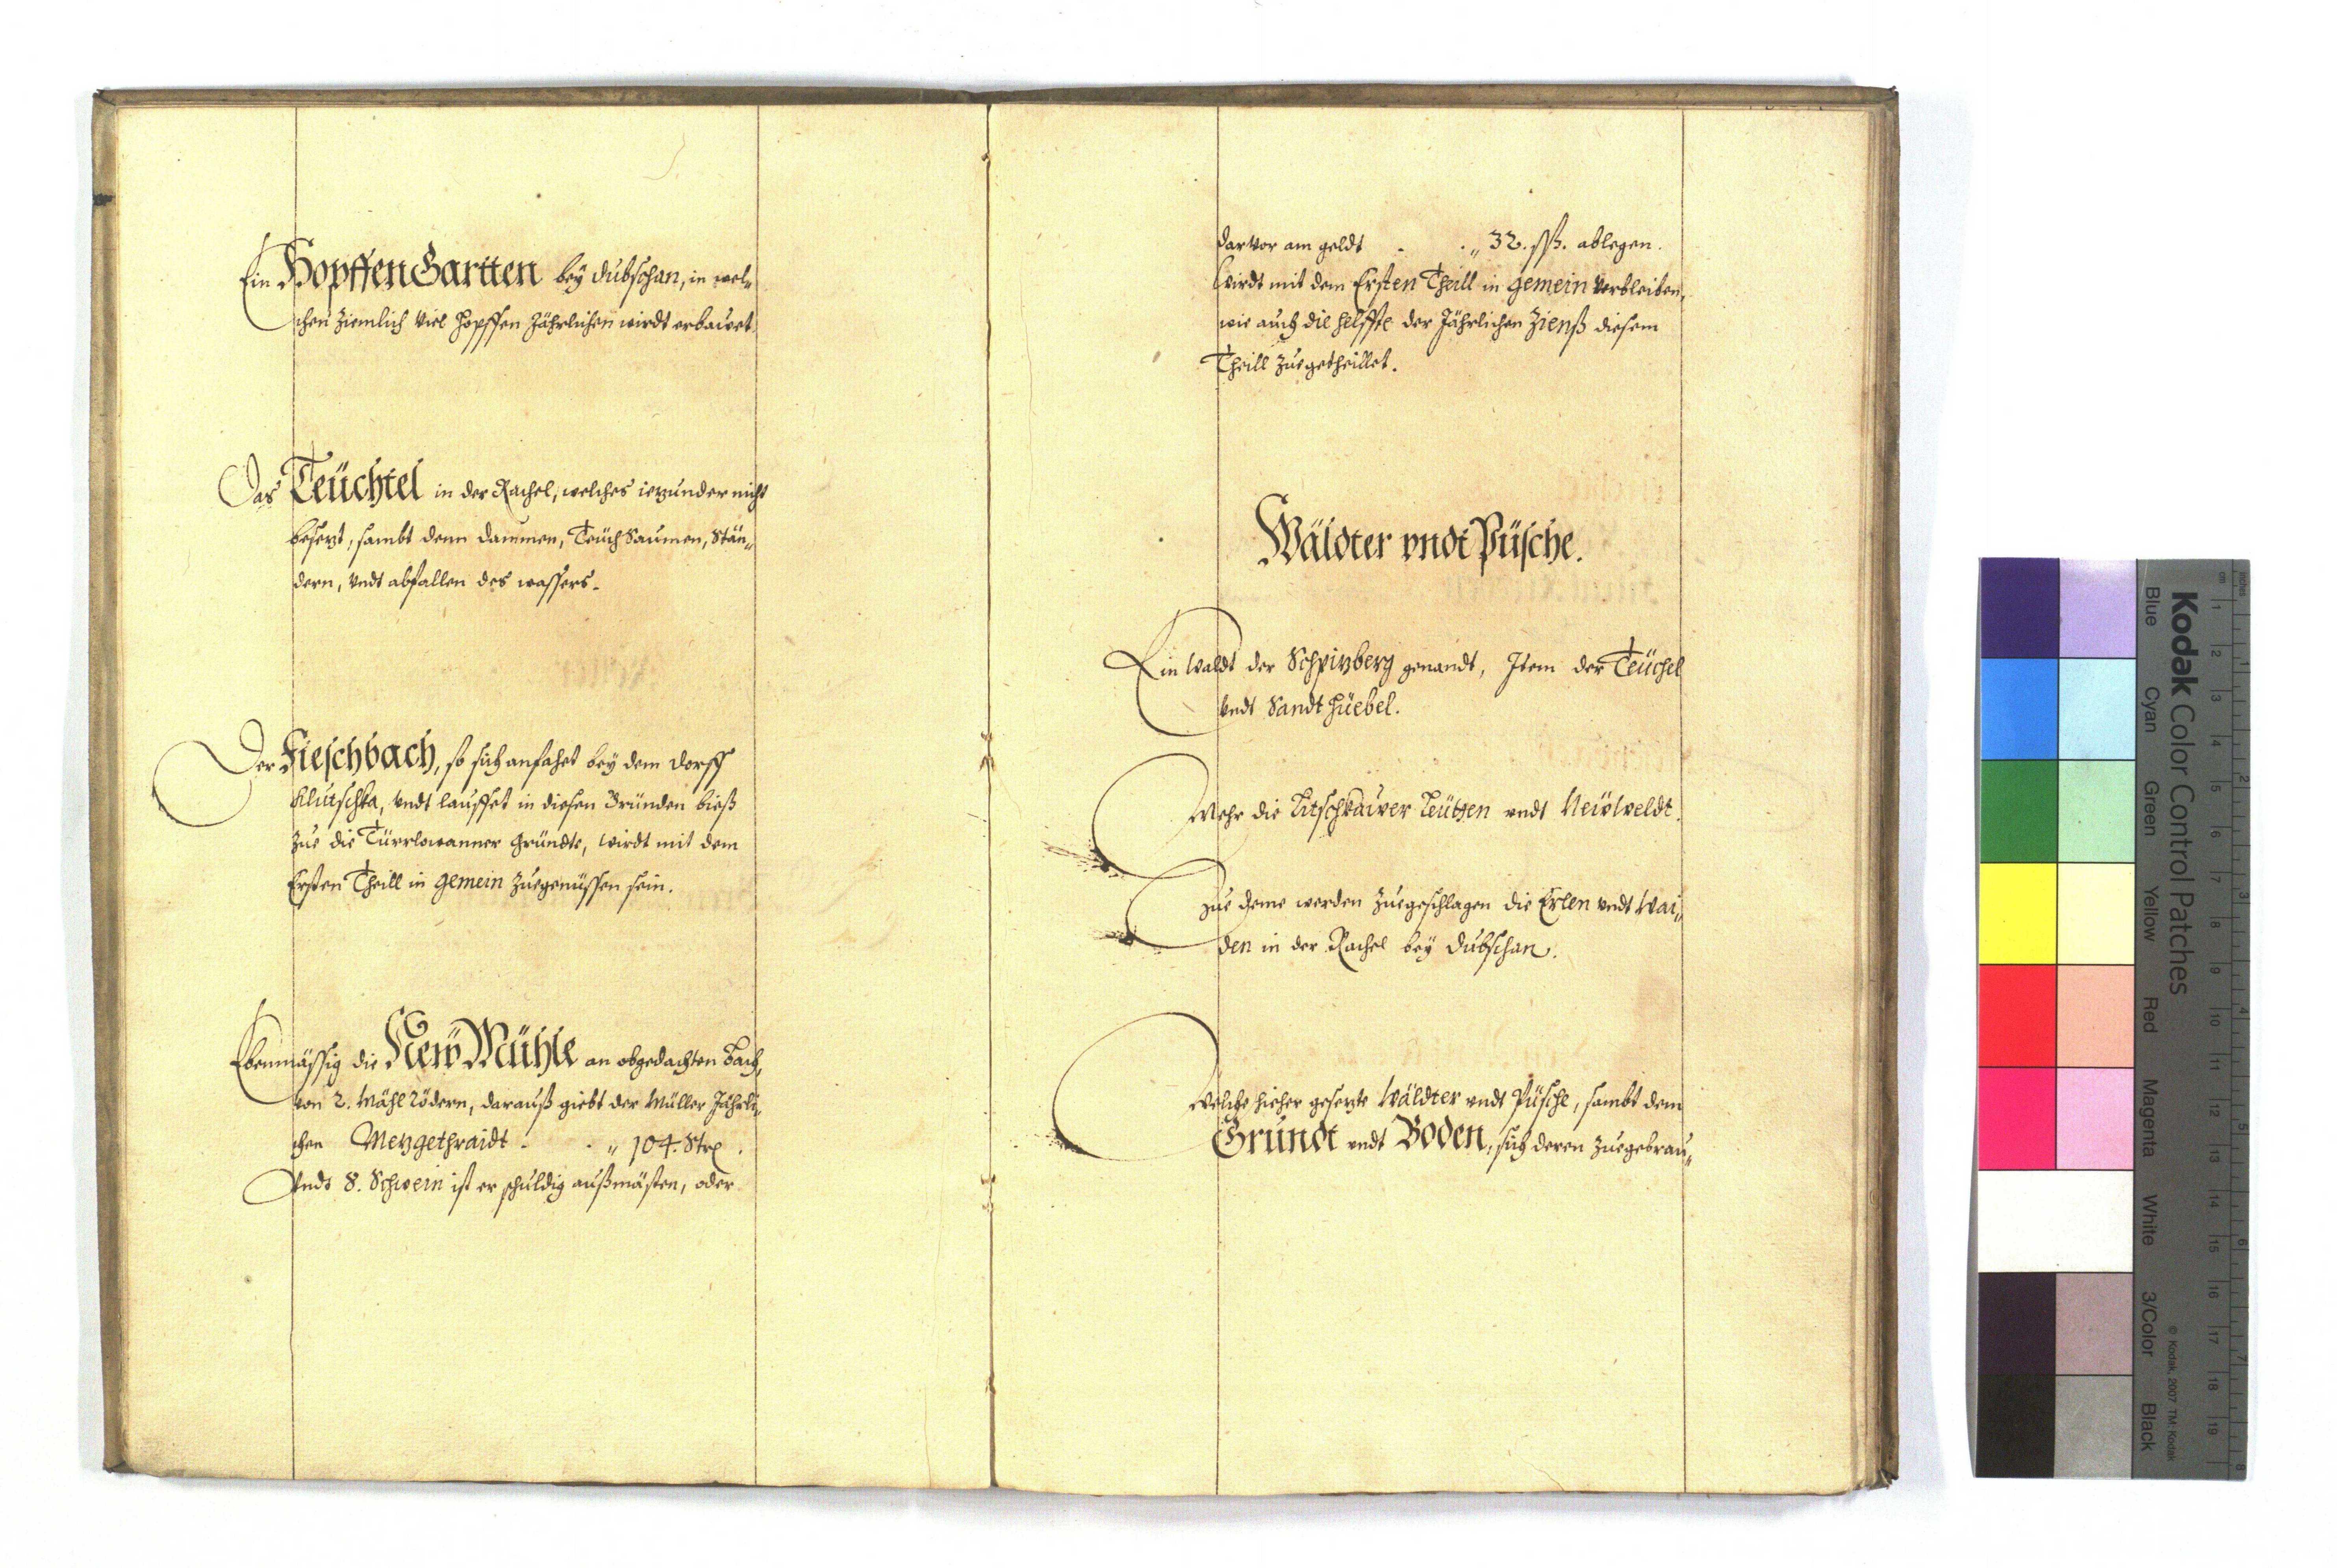 Ein Hopffen Gartten beÿ Dubschan, in wel„
chen ziemlich viel Hopffen Jährlichen wirdt erbauet.
Das Teüchtel in der Rachel, welches iezunder nicht
besezt, sambt denn dammen, Teüch Saumen, Stän„
dern, vndt abfallen des wassers.
Der Fieschbach, so sich anfahet beÿ dem dorff
Klutschka, vndt lauffet in diesen Gründen bieß
zue die Türrlowanner gründte, wirdt mit dem
Ersten Theill in gemein zuegenüssen sein.
Ebenmässig die Newmühle an obgedachten Bach,
von 2. Mähl Rödern, darauß giebt der Müller Jährli„
chen Mezgethraidt - . „ 104. Str .
Vndt 8. Schwein ist er schuldig außmästen, oder
darvor am geldt - . „ 32. ßß. ablegen.
Wirdt mit dem Ersten Theill in gemein verbleiben,
wie auch die helffte der Jährlichen Zienß diesem
Theill zuegetheillet.
Wäldter vndt Püsche.
Ein Waldt der Schpizberg genandt, Item der Teüchel
vndt Sandt Hüebel.
Mehr die Leütten vndt Neüweldt.
Zue deme werden zuegeschlagen die Erlen vndt Wai„
den in der Rachel beÿ Dubschan.
Welche hieher gesezte Wäldter vndt Püsche, sambt dem
Grundt vndt Boden, sich deren zuegebrau„
Kodak Color Control Patches
Blue Cyan Green Yellow Red Magenta White 3/Color Black
© Kodak, 2007 TM: Kodak
cm 1 2 3 4 5 6 7 8 9 10 11 12 13 14 15 16 17 18 19
inches 1 2 3 4 5 6 7 8